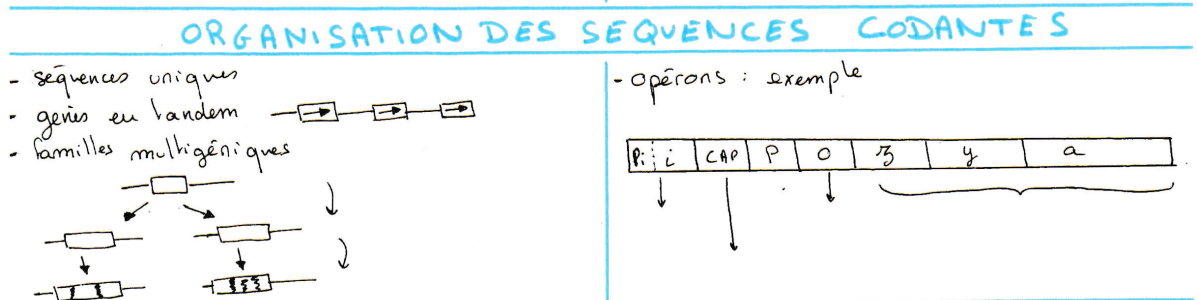 ORGANISATION DES SEQUENCES CODANTES
- séquences uniques
- gènes en tandem
- familles multigéniques
- opérons : exemple
Pi i CAP P O z y a